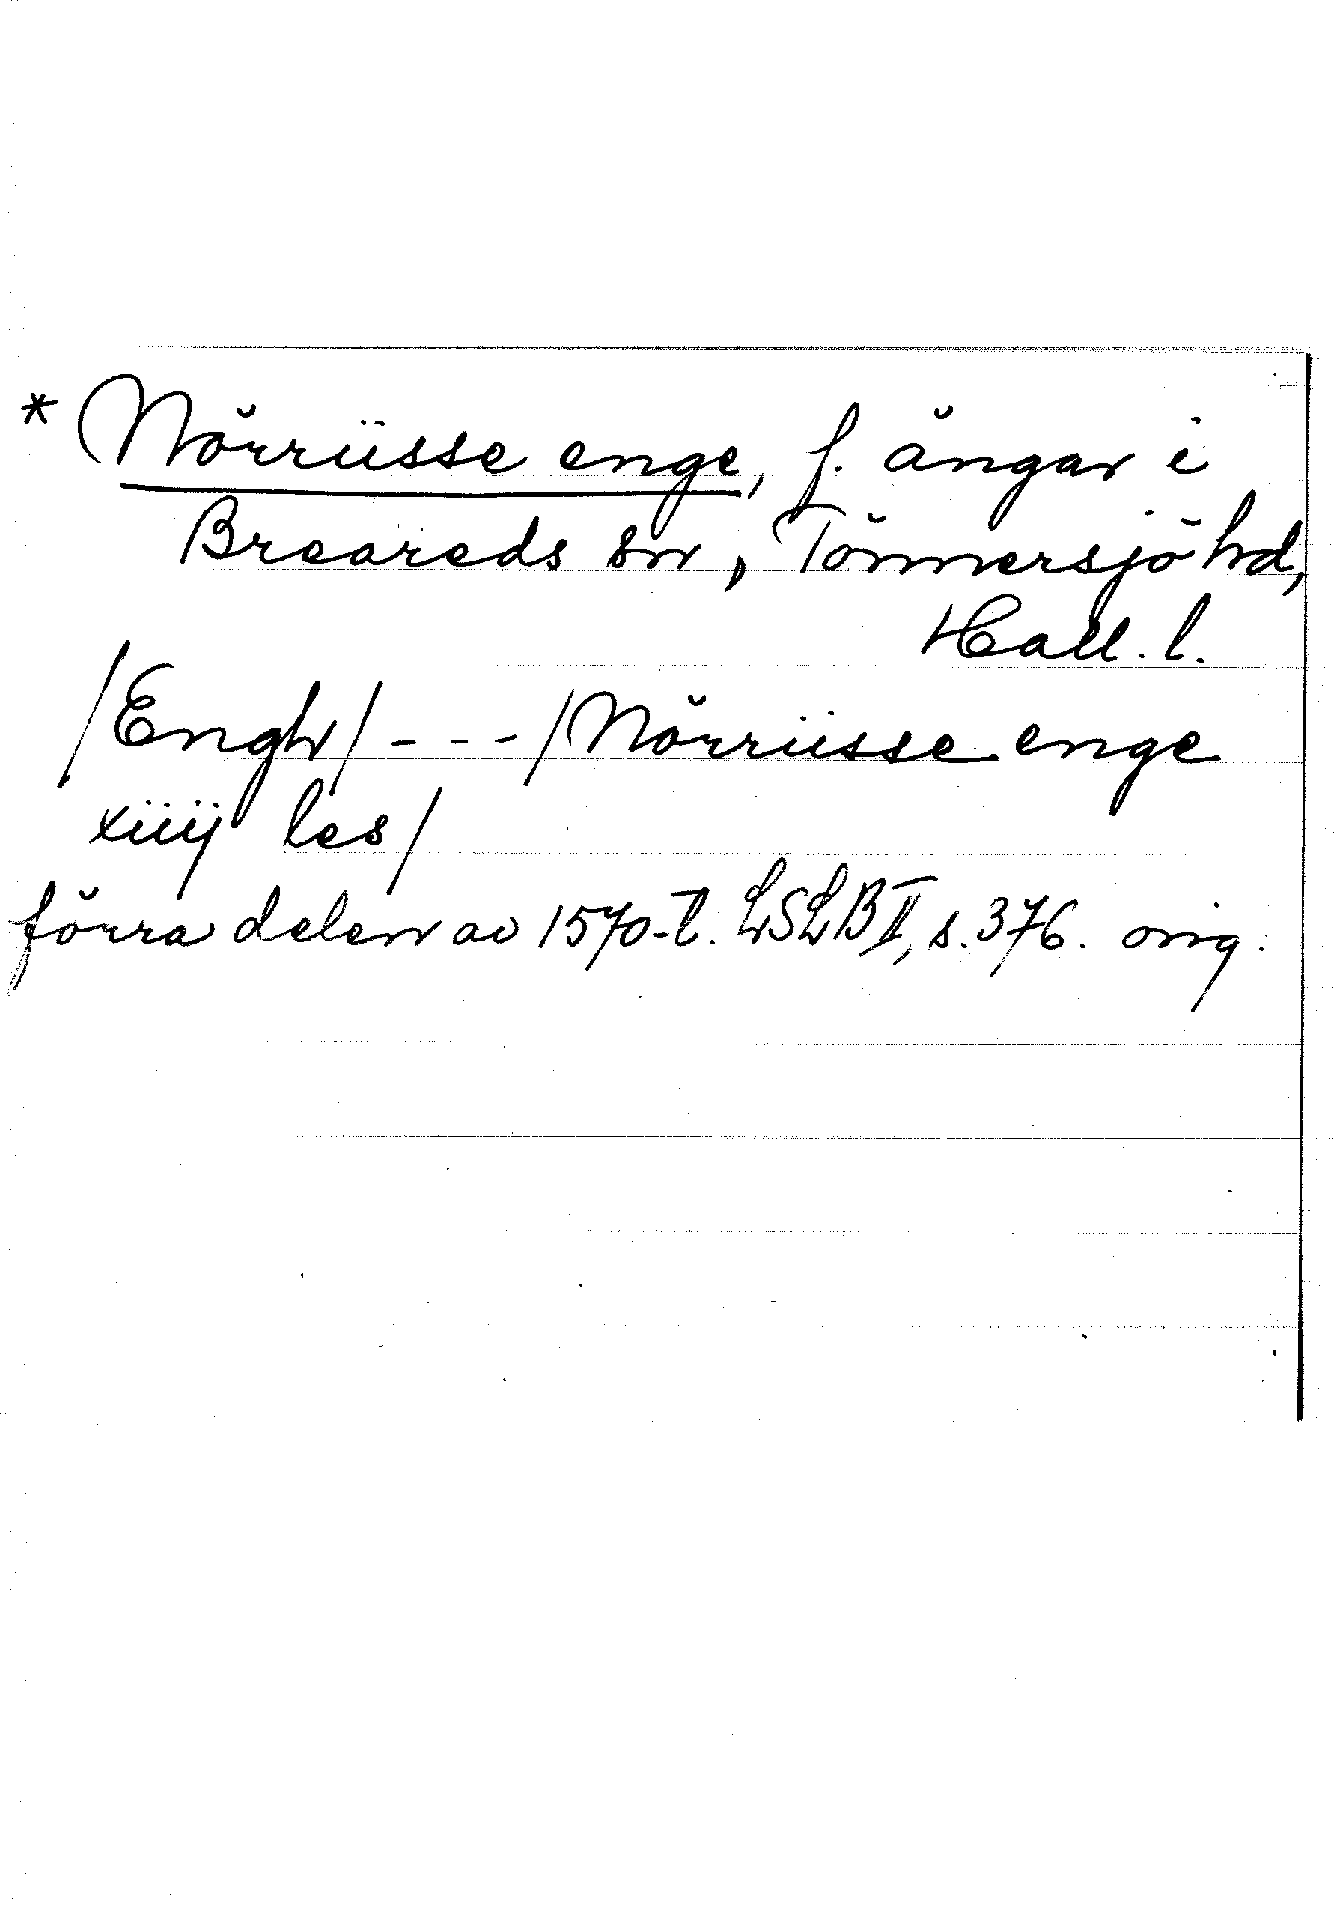 * Nörrüsse enge, f. ängar i
Breareds sn, Tönnersjö hd,
Hall. l.
/Engh/ - - - /Nörrüsse enge
xiiij les/
förra delen av 1570-t. LSLB II, s. 376. orig.